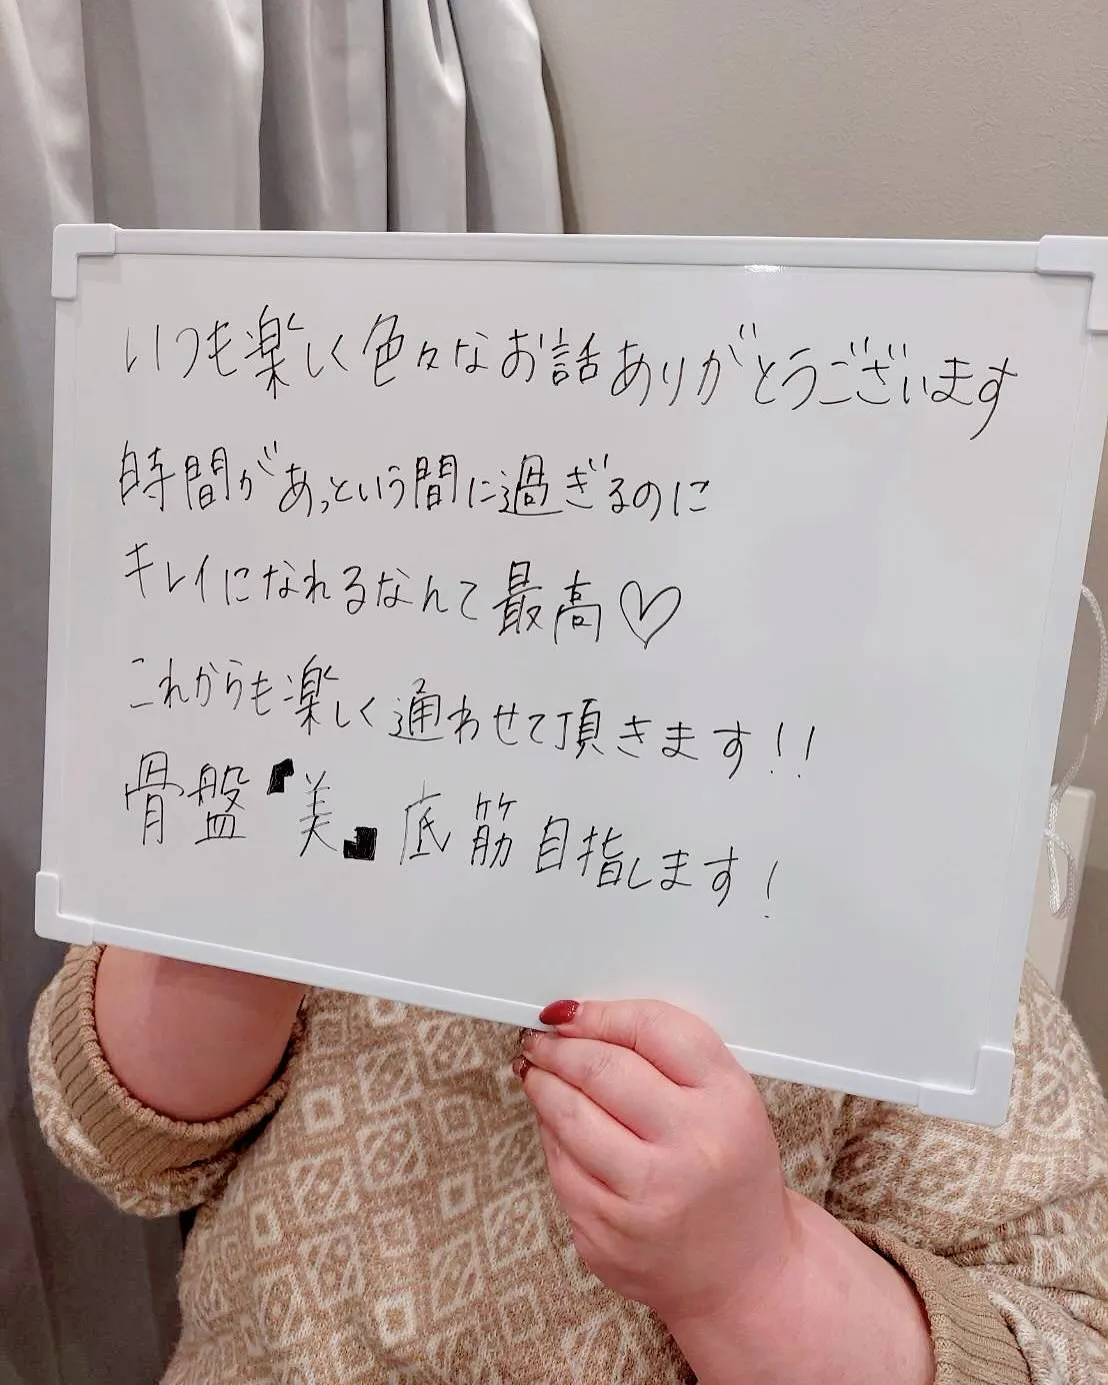 いつも楽しく色々なお話ありがとうございます
時間があっという間に過ぎるのに
キレイになれるなんて最高♡
これからも楽しく通わせて頂きます!!
骨盤『美』底筋目指します!